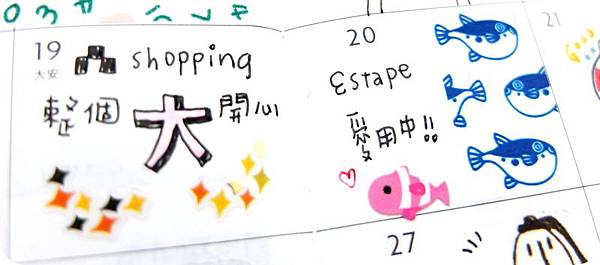 19
大安
shopping
整個大開心
20
Estape
愛用中!!
21
Good
27